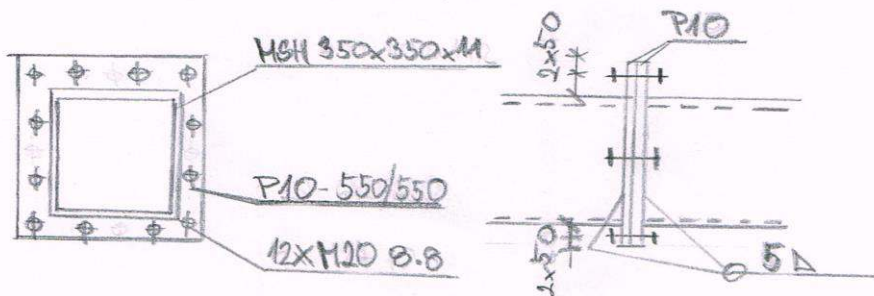 MSH 350x350x11
P10-550/550
12xM20 8.8
P10
2x50
2x50
5